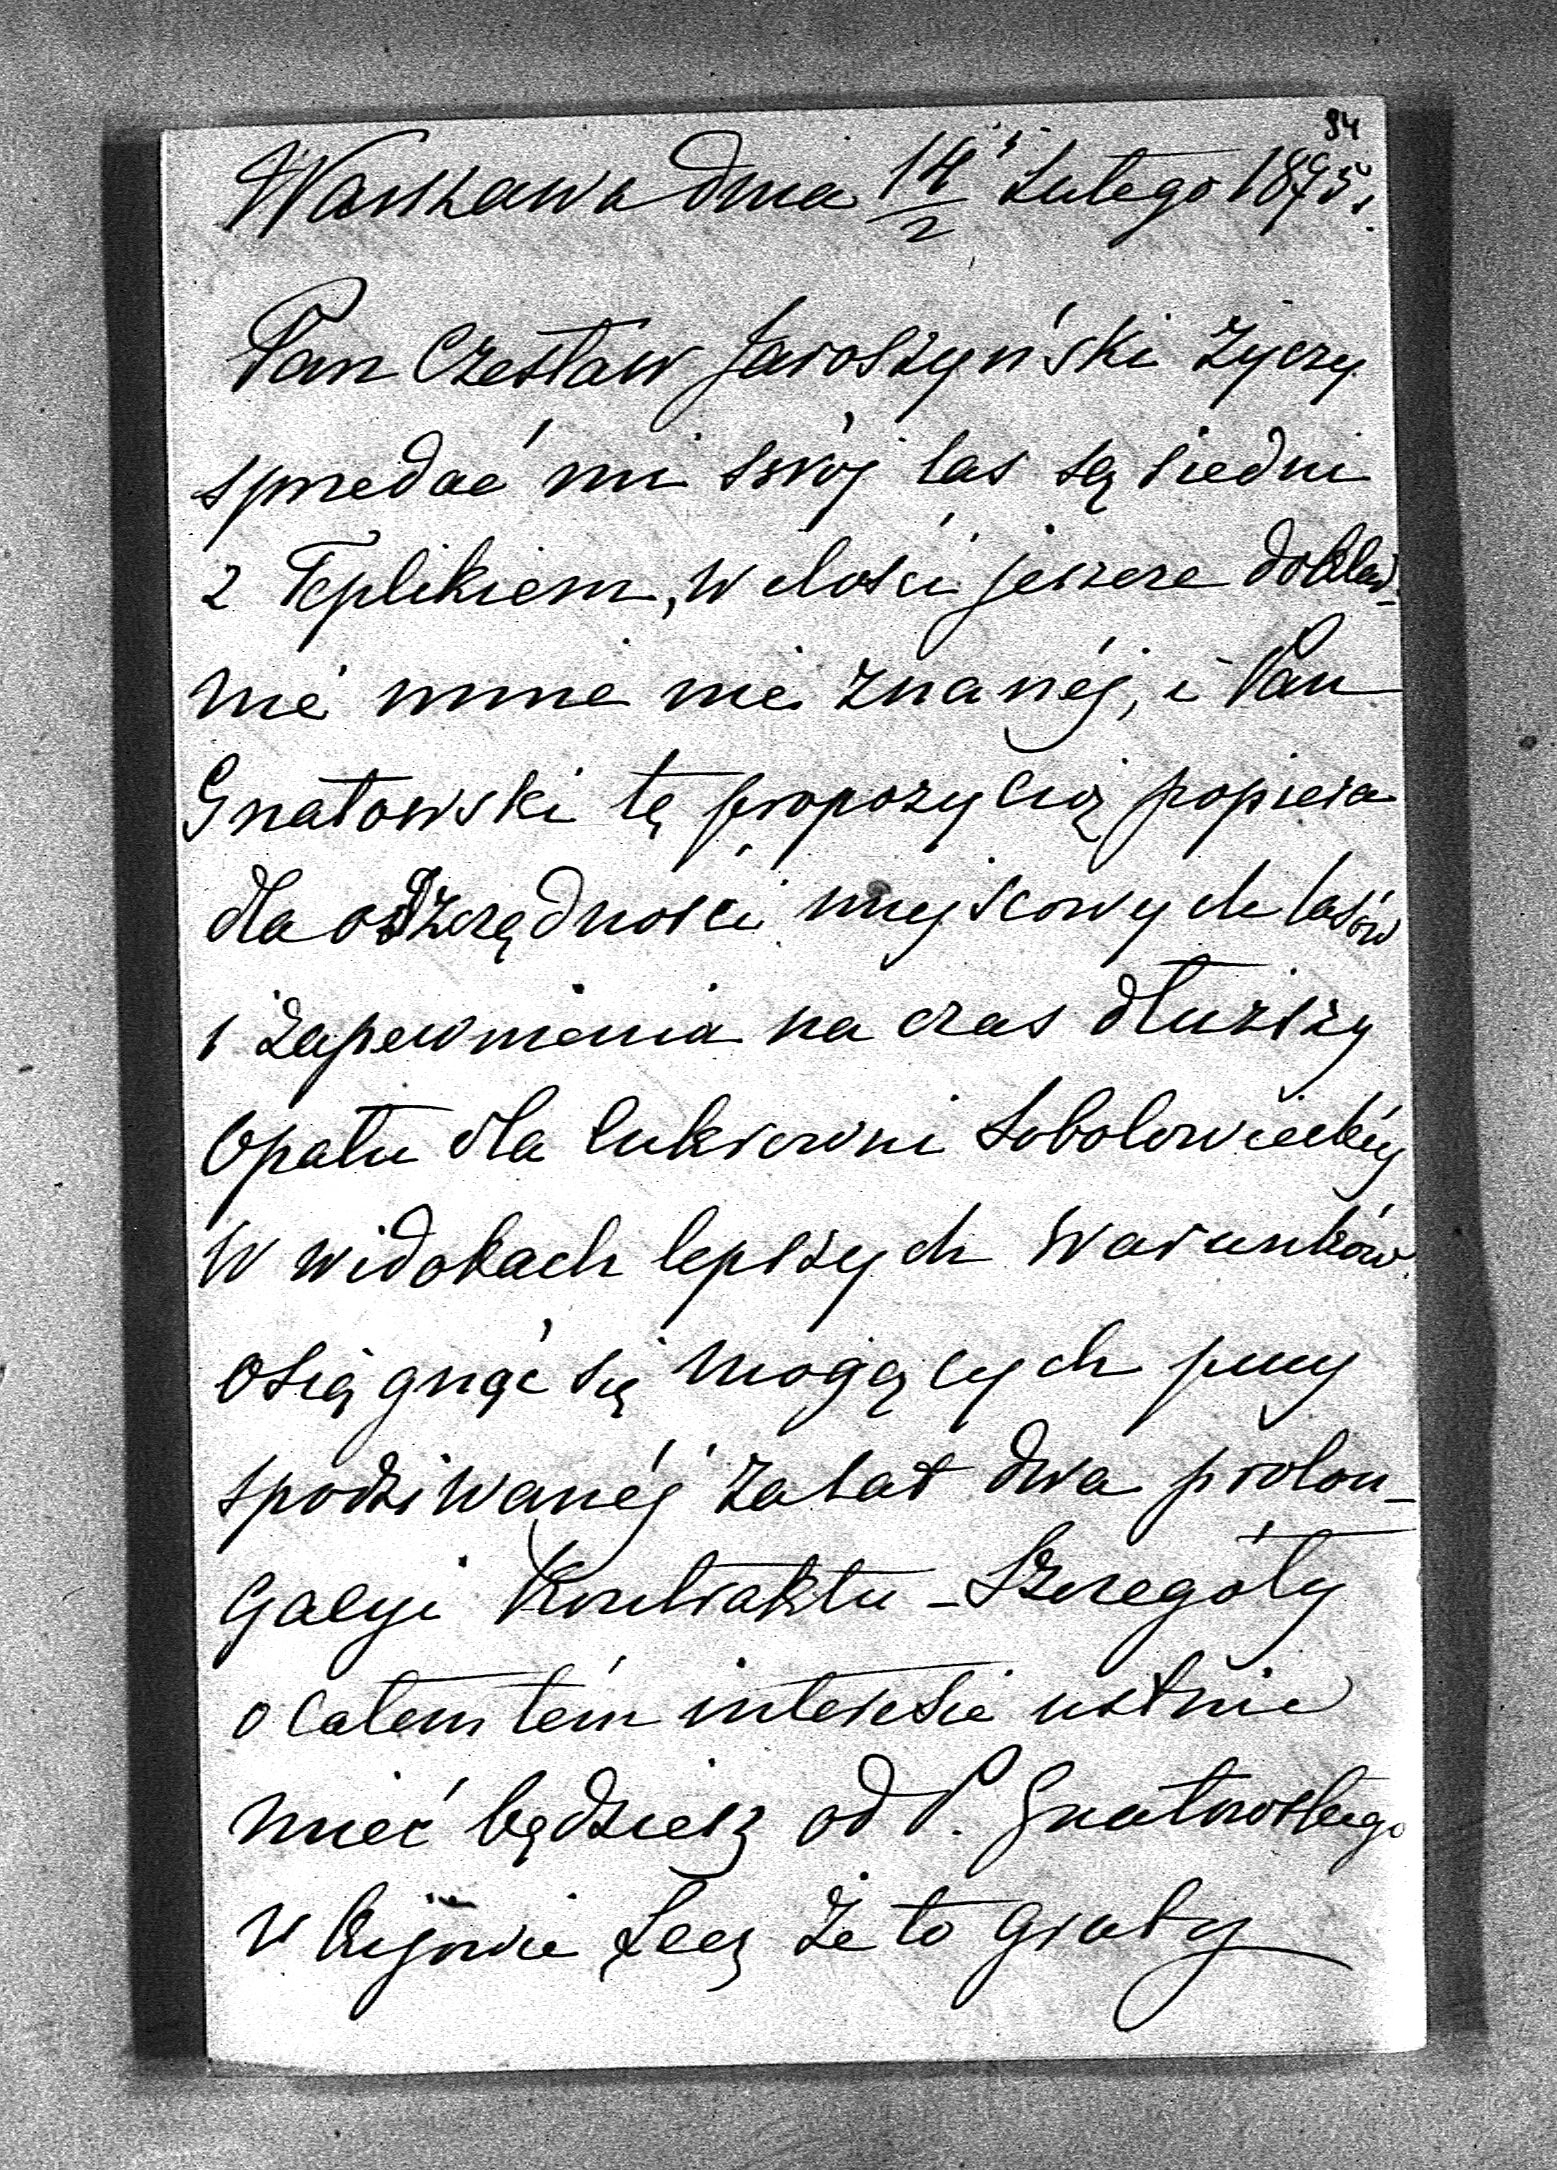 84
Warszawa dnia 14/2 Lutego 1895.
Pan Czesław Jaroszyński życzy
sprzedać mi swój las są siedni
z Teplikiem, w ilości jeszcze dokład-
nie mnie nie znanéj, i Pan
Gnatowski tę propozycią popiera
dla oszczędności miejscowych lasów
i zapewnienia na czas dłuższy
Opału dla Cukrowni Sobolowieckiéj
w widokach lepszych warunków
osiągnąć się mogących przy
spodziwanéj za lat dwa prolon-
gacyi Kontraktu – Szczegóły
o całem tém interesie ustnie
mieć będziesz od P. Gnatowskiego
w Kijowie Lecz że to gruby